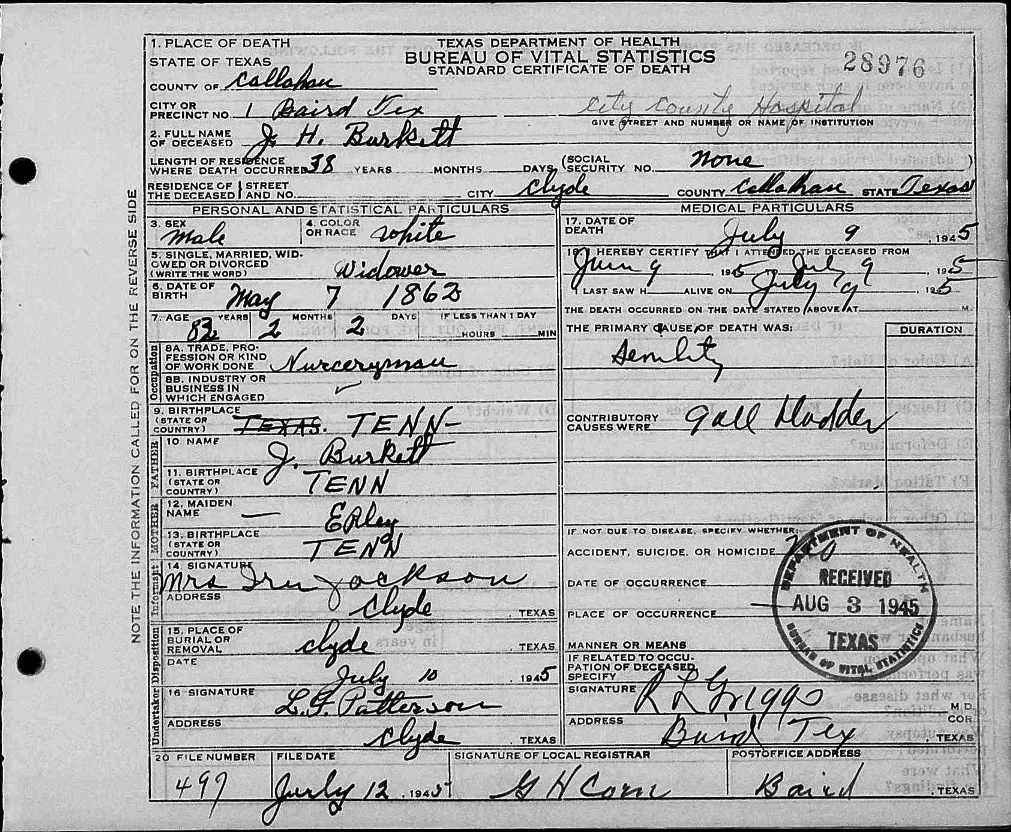 1. PLACE OF DEATH
STATE OF TEXAS
COUNTY OF Callahan
TEXAS DEPARTMENT OF HEALTH
BUREAU OF VITAL STATISTICS
STANDARD CERTIFICATE OF DEATH
28976
CITY OR PRECINCT NO. 1 Baird Tex
City County Hospital
GIVE STREET AND NUMBER OR NAME OF INSTITUTION
2. FULL NAME OF DECEASED J. H. Burkett
LENGTH OF RESIDENCE WHERE DEATH OCCURRED 38 YEARS MONTHS DAYS (SOCIAL SECURITY NO. None )
RESIDENCE OF THE DECEASED STREET AND NO. CITY Clyde COUNTY Callahan STATE Texas
PERSONAL AND STATISTICAL PARTICULARS
3. SEX Male
4. COLOR OR RACE White
5. SINGLE, MARRIED, WIDOWED OR DIVORCED (WRITE THE WORD) Widower
6. DATE OF BIRTH May 7 1862
7. AGE YEARS 2 MONTHS 2 DAYS IF LESS THAN 1 DAY HOURS MIN
Occupation
8A. TRADE, PROFESSION OR KIND OF WORK DONE Nurceryman
8B. INDUSTRY OR BUSINESS IN WHICH ENGAGED
9. BIRTHPLACE (STATE OR COUNTRY) TEXAS. TENN-
FATHER
10 NAME J. Burkett
11. BIRTHPLACE (STATE OR COUNTRY) TENN
MOTHER
12. MAIDEN NAME — ERley
13. BIRTHPLACE (STATE OR COUNTRY) TENN
Informant
14. SIGNATURE Mrs Jackson
ADDRESS Clyde , TEXAS
Disposition
15. PLACE OF BURIAL OR REMOVAL clyde
DATE July 10 1945
Undertaker
16 SIGNATURE L. F. Patterson
ADDRESS Clyde , TEXAS
MEDICAL PARTICULARS
17. DATE OF DEATH July 9 , 1945
18. I HEREBY CERTIFY THAT I ATTENDED THE DECEASED FROM
9 1945 July 9 1945
I LAST SAW H ALIVE ON July 9 , 1945
THE DEATH OCCURRED ON THE DATE STATED ABOVE AT M.
THE PRIMARY CAUSE OF DEATH WAS:
DURATION
CONTRIBUTORY CAUSES WERE gall bladder
IF NOT DUE TO DISEASE, SPECIFY WHETHER:
ACCIDENT, SUICIDE, OR HOMICIDE
DATE OF OCCURRENCE
PLACE OF OCCURRENCE
MANNER OR MEANS
IF RELATED TO OCCUPATION OF DECEASED, SPECIFY
SIGNATURE R L Griggs M.D.
COR.
ADDRESS Baird Tex , TEXAS
DEPARTMENT OF HEALTH
RECEIVED
AUG 3 1945
TEXAS
BUREAU OF VITAL STATISTICS
20 FILE NUMBER 497
FILE DATE July 12 , 1945
SIGNATURE OF LOCAL REGISTRAR G H Corn
POSTOFFICE ADDRESS Baird , TEXAS
NOTE THE INFORMATION CALLED FOR ON THE REVERSE SIDE